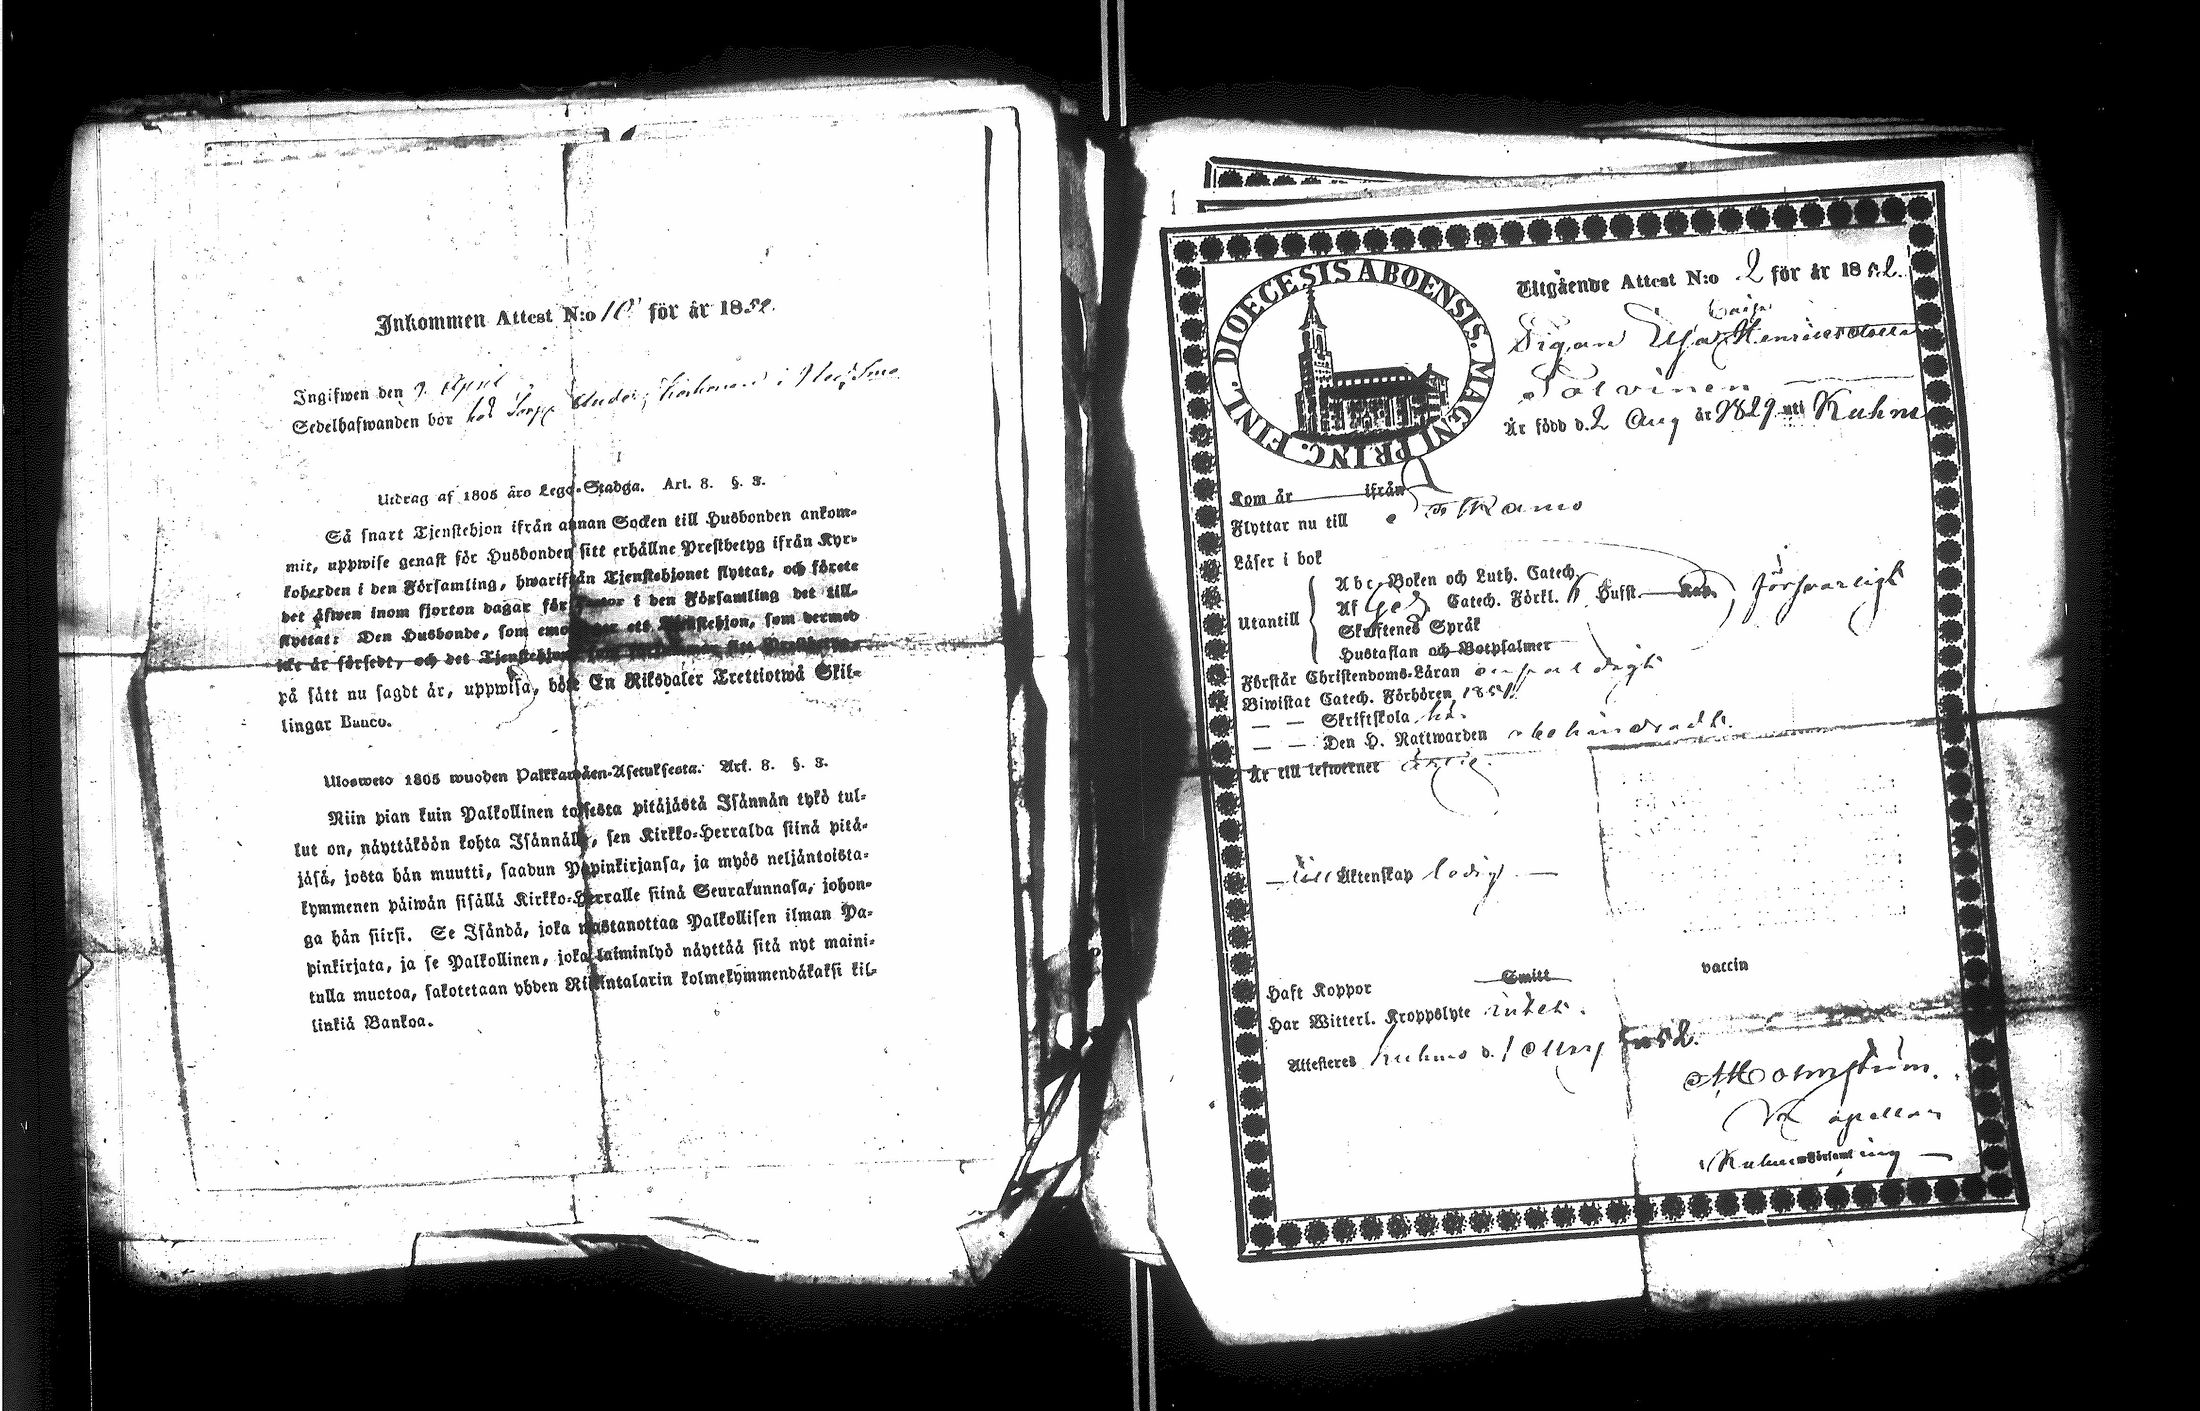 Inkommen Attest N:o 10 för år 1852.
Ingifwen den 9. April
Sedelhafwanden bor hos Torp. i
Utdrag af 1805 års Lego-Stadga. Art. 8. §. 3.
Så snart Tjenstehjon ifrån annan Socken till Husbonden ankom-
mit, uppwise genast för Husbonden sitt erhållne Prestbetyg ifrån Kyr-
koherden i den Församling, hwarifrån Tjenstehjonet flyttat, och förete
det äfwen inom fjorton dagar för i den Församling det till-
flyttat: Den Husbonde, som ett Tjenstehjon, som dermed
icke är försedt, och det Tjenstehjon
på sätt nu sagdt är, uppwisa, böte En Riksdaler Trettiotwå Skil-
lingar Banco.
Ulosweto 1805 wuoden Palkkawäen-Asetuksesta. Art. 8. §. 3.
Niin pian kuin Palkollinen toisesta pitäjästä Isännän tykö tul-
lut on, näyttäköön kohta Isännälle, sen Kirkko-Herralda siinä pitä-
jäsä, josta hän muutti, saadun Papinkirjansa, ja myös neljäntoista-
kymmenen päiwän sisällä Kirkko-Herralle siinä Seurakunnasa, johon-
ga hän siirsi. Se Isändä, joka wastanottaa Palkollisen ilman Pa-
pinkirjata, ja se Palkollinen, joka laiminlyö näyttää sitä nyt maini-
tulla muotoa, sakotetaan yhden Riikintalarin kolmekymmendäkaksi kil-
linkiä Bankoa.
DIOECESIS ABOENSIS. MAGNI PRINC. FINL.
Utgående Attest N:o 2 för år 1852.
Caisa
Pigan Elsa Henricsdotter
Polvinen
Är född d. 2 Aug år 1829 uti Kuhmo
Kom år ifrån
Flyttar nu till
Läser i bok
Utantill
Abc-Boken och Luth. Catech.
Af Catech. Förkl. Hufst. Kap. försvarligt
Skriftenes Språk
Hustaflan och Botpsalmer
Förstår Christendoms-Läran
Biwistat Catech. Förhören 1851.
— — Skriftskola
— — Den H. Nattwarden obehindradt.
Är till lefwernet
till Äktenskap ledig.
Haft Koppor Smitt vaccin
Har Witterl. Kroppslyte intet.
Attesteres Kuhmo d. 1 1852.
Holmström.
V. Capellan
Kuhmo Församling